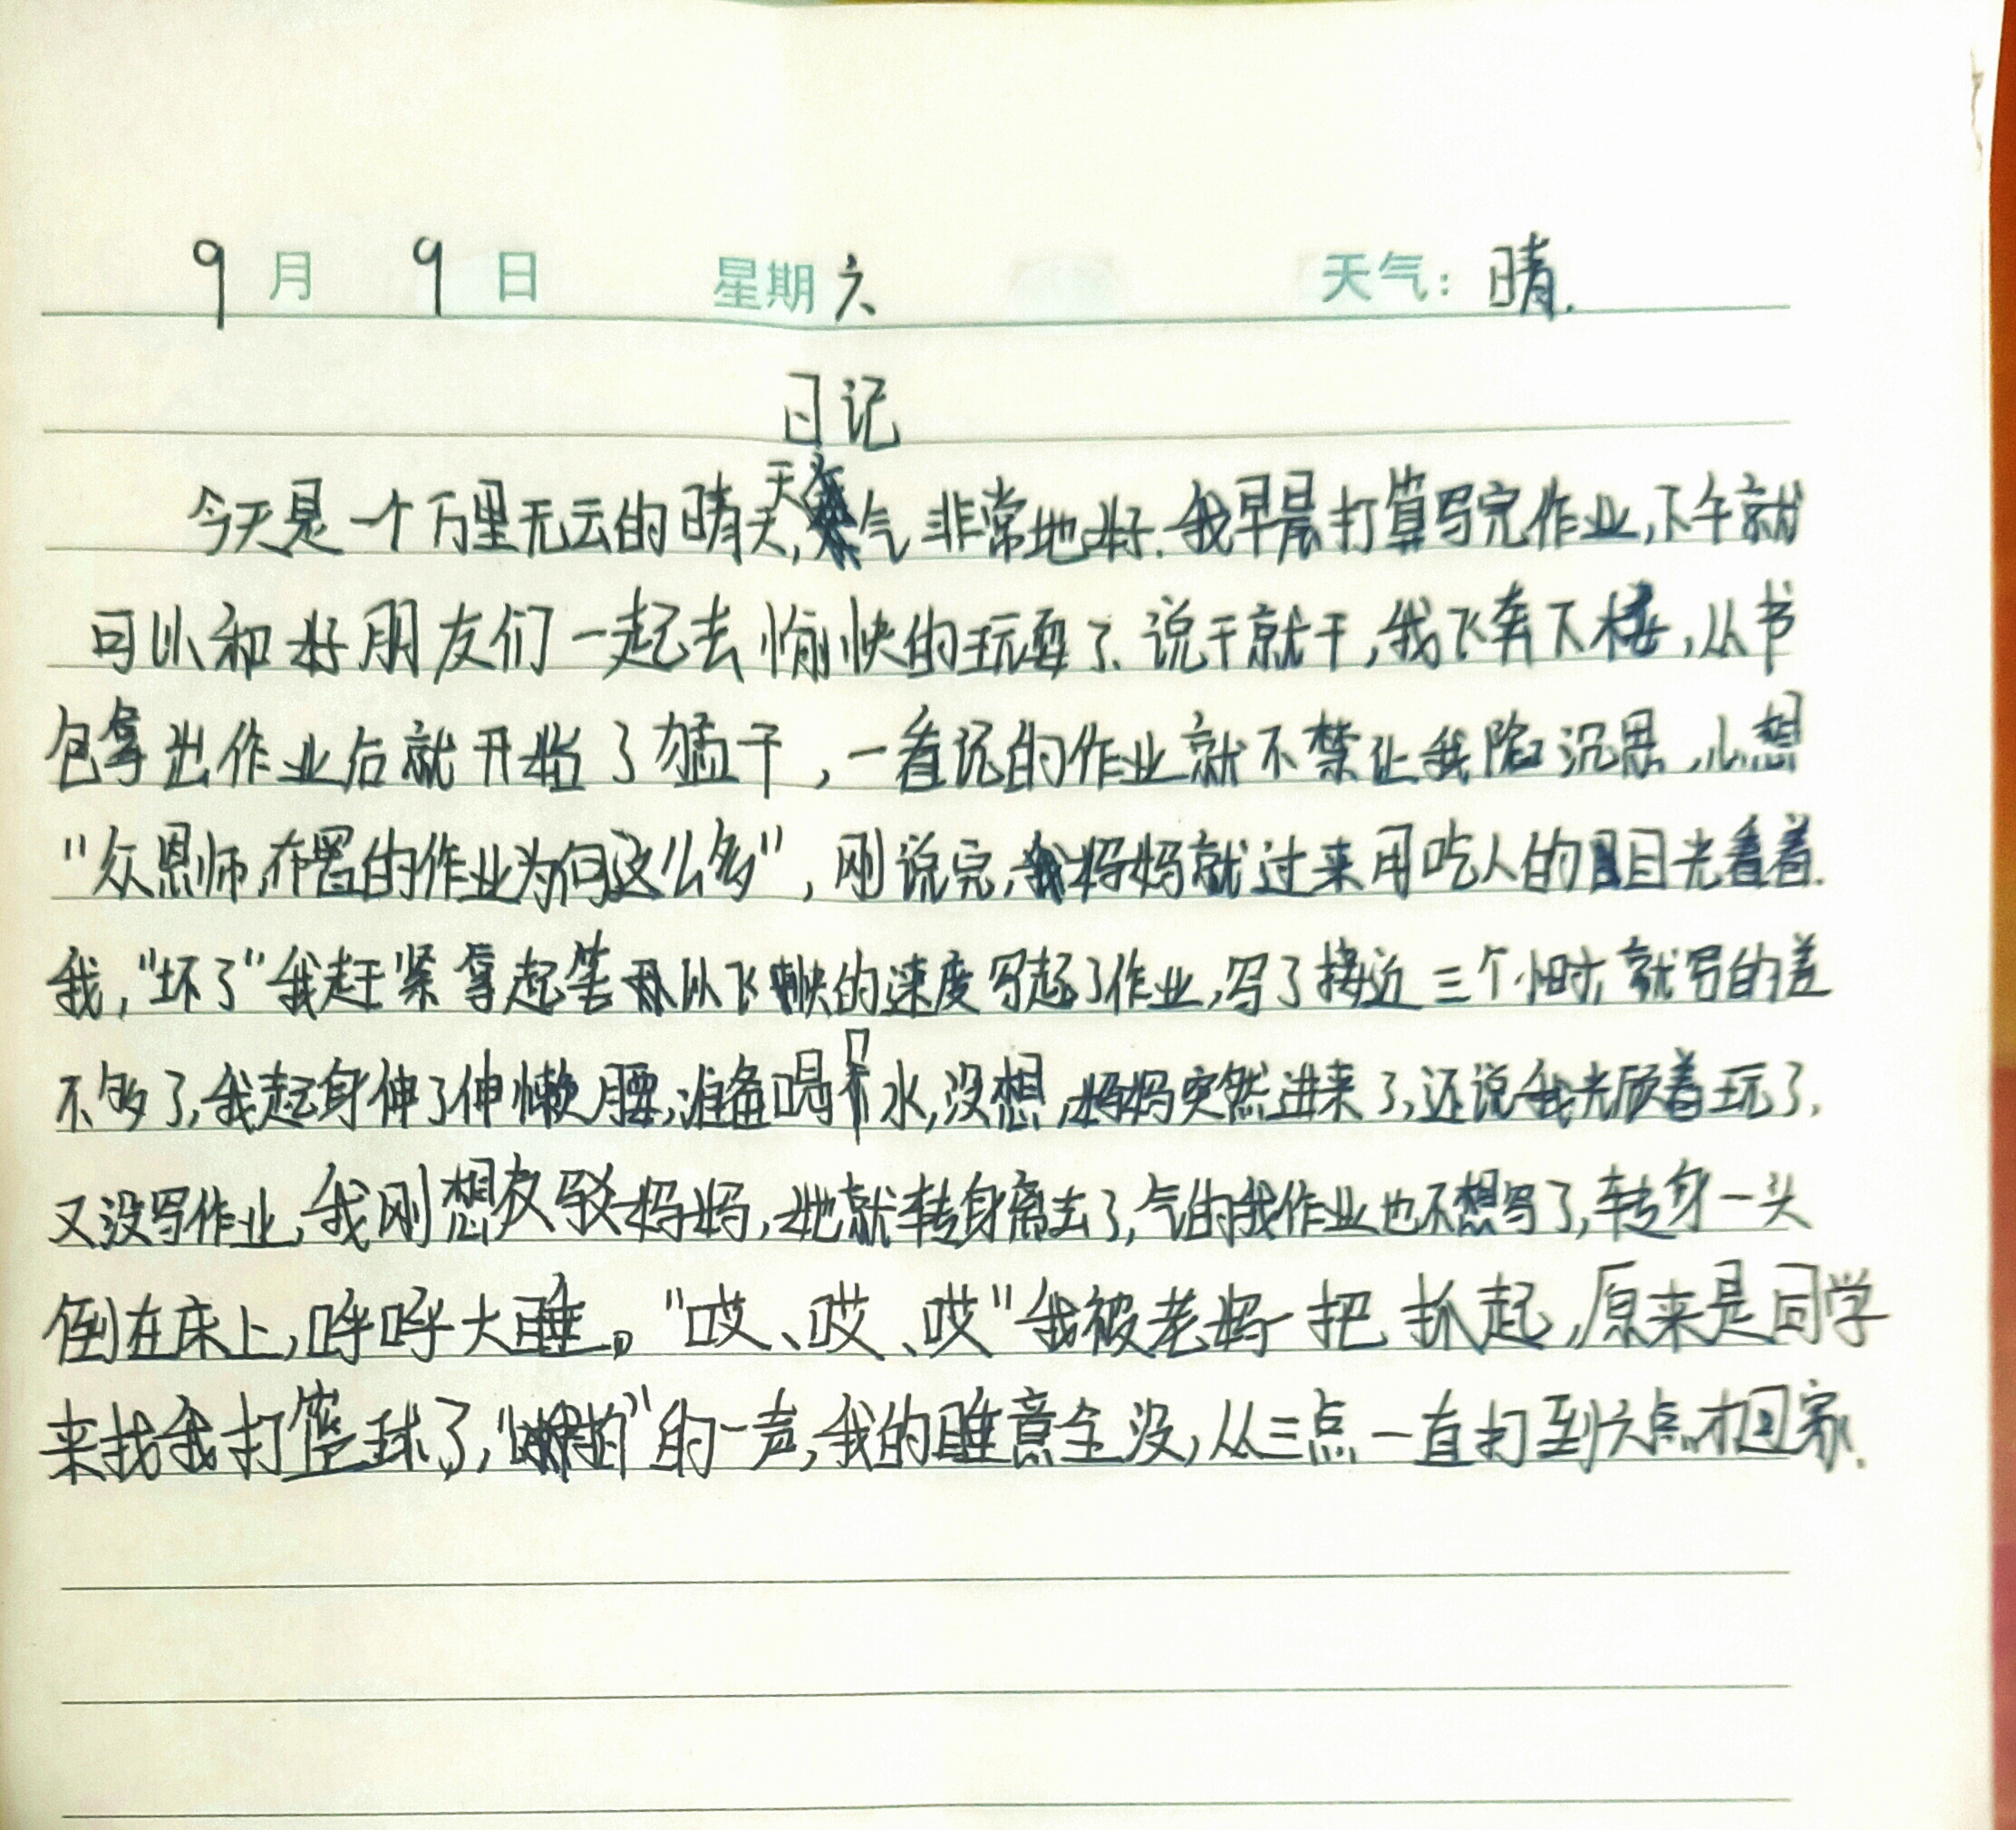 9月 9日 星期六 天气：晴.
日记
今天是一个万里无云的晴天,天气非常地好.我早晨打算写完作业,下午就
可以和好朋友们一起去愉快的玩耍了.说干就干,我飞奔下楼,从书
包拿出作业后就开始了猛干,一看记的作业就不禁让我陷沉思,心想
"众恩师,布置的作业为何这么多",刚说完,我妈妈就过来用吃人的目光看着.
我,"坏了"我赶紧拿起笔以飞快的速度写起了作业,写了接近三个小时,就写的差
不够了,我起身伸了伸懒腰,准备喝个水,没想,妈妈突然进来了,还说我光顾着玩了,
又没写作业,我刚想反驳妈妈,她就转身离去了,气的我作业也不想写了,转身一头
倒在床上,呼呼大睡。"哎、哎、哎"我被老妈一把抓起,原来是同学
来找我打篮球了,"的一声,我的睡意全没,从三点一直打到六点才回家.